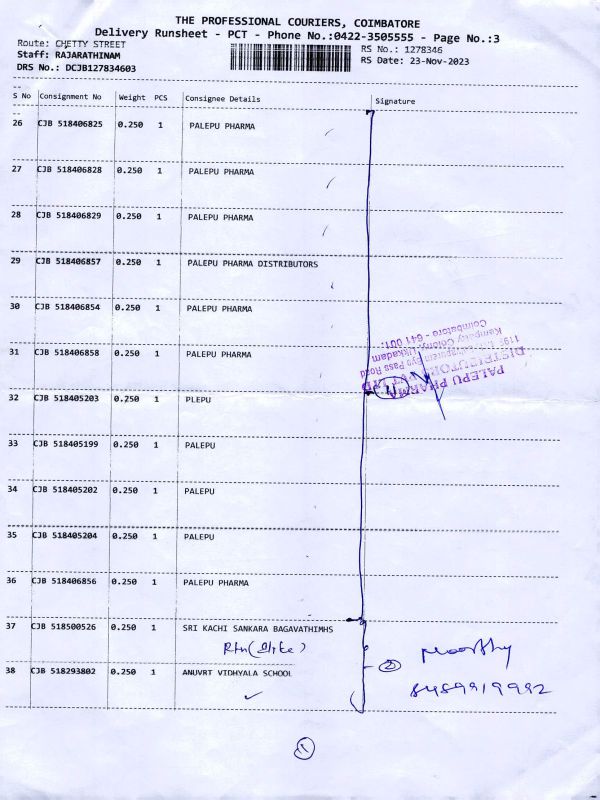 THE PROFESSIONAL COURIERS, COIMBATORE
Delivery Runsheet - PCT - Phone No.:0422-3505555 - Page No.:3
Route: CHETTY STREET
RS No.: 1278346
Staff: RAJARATHINAM
RS Date: 23-Nov-2023
DRS No.: DCJB127834603
S No Consignment No Weight PCS Consignee Details Signature
26 CJB 518406825 0.250 1 PALEPU PHARMA
27 CJB 518406828 0.250 1 PALEPU PHARMA
28 CJB 518406829 0.250 1 PALEPU PHARMA
29 CJB 518406857 0.250 1 PALEPU PHARMA DISTRIBUTORS
30 CJB 518406854 0.250 1 PALEPU PHARMA
31 CJB 518406858 0.250 1 PALEPU PHARMA
PALEPU PHARMA
DISTRIBUTORS PVT LTD
Bye Pass Road
Kempatty Colony, Ukkadam
Coimbatore - 641 001.
11
32 CJB 518405203 0.250 1 PLEPU
33 CJB 518405199 0.250 1 PALEPU
34 CJB 518405202 0.250 1 PALEPU
35 CJB 518405204 0.250 1 PALEPU
36 CJB 518406856 0.250 1 PALEPU PHARMA
37 CJB 518500526 0.250 1 SRI KACHI SANKARA BAGAVATHIMHS
Rtn
2
Moorthy
8489919992
38 CJB 518293802 0.250 1 ANUVRT VIDHYALA SCHOOL